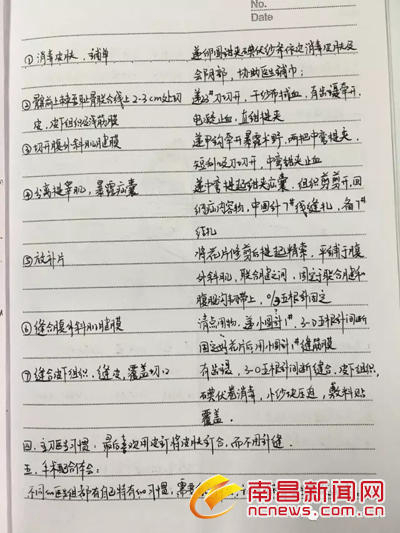 No.
Date
① 消毒皮肤、铺单
递卵圆钳夹碘伏纱布依次消毒皮肤及
会阴部，协助医生铺巾；
② 髂前上棘至耻骨联合线上2-3cm处切
递23#刀切开，干纱布拭血，有齿镊牵开，
皮、皮下组织及浅筋膜
电凝止血，直钳提夹
③ 切开腹外斜肌腱膜
递甲钩牵开暴露术野，两把中弯提夹，
中弯钳止血
④ 分离提睾肌，暴露疝囊
递中弯提起钳夹疝囊，组织剪剪开，回
纳疝内容物，中圆针7#线缝扎，备7#
结扎
⑤ 放补片
将花片修剪后提起精索，平铺于腹
外斜肌，联合腱之间，固定于联合腱和
腹股沟韧带上，
固定
⑥ 缝合腹外斜肌腱膜
清点用物，递小圆针1#，3-0
间断
固定好花片后用小圆针1#缝筋膜
⑦ 缝合皮下组织、缝皮，覆盖切口
有齿镊，3-0
间断缝合，皮下组织，
碘伏卷消毒，小纱块压迫，敷料贴
覆盖。
四、主刀医生习惯：最后喜欢用皮钉将皮肤钉合，而不用针缝。
五、手术配合体会：
不同的医生组都有自己特有的习惯，需要
南昌新闻网
ncnews.com.cn